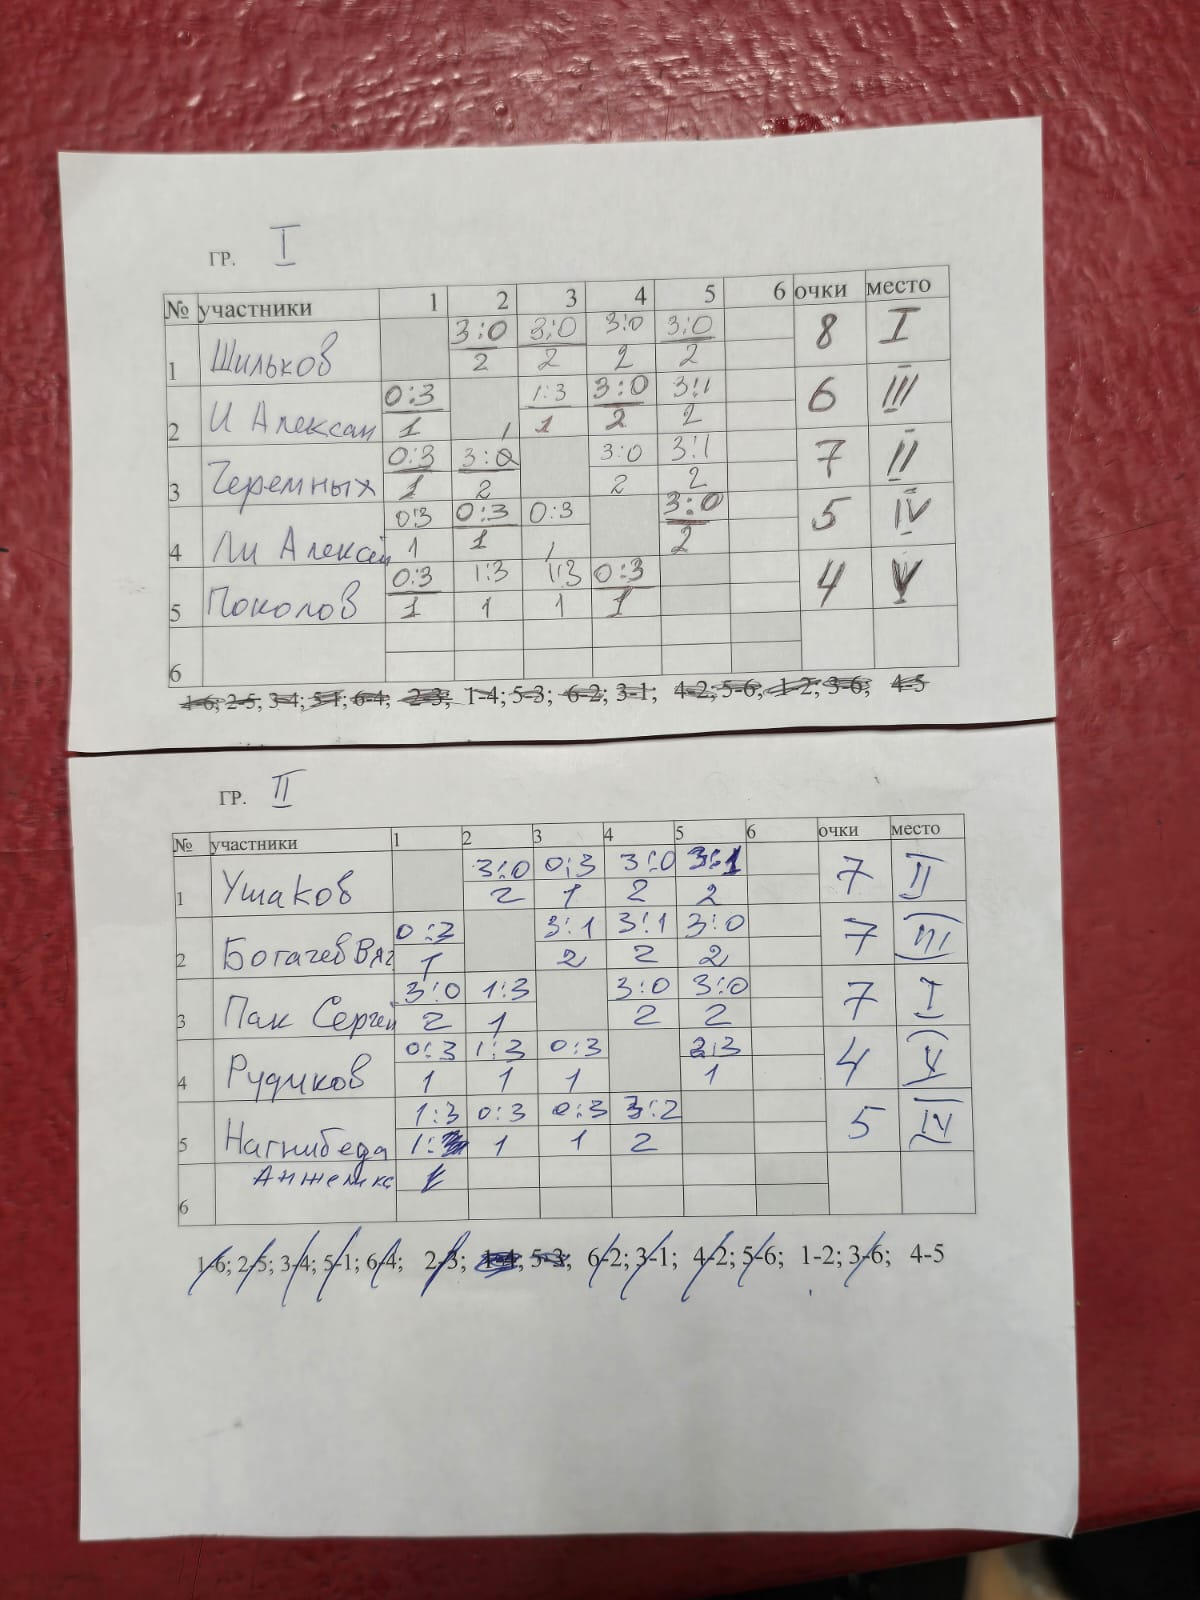 ГР. I
№ участники 1 2 3 4 5 6 очки место
1 Шильков 3:0 2 3:0 2 3:0 2 3:0 2 8 I
2 И Алексан 0:3 1 1:3 1 3:0 2 3:1 2 6 III
3 Черемных 0:3 1 3:0 2 3:0 2 3:1 2 7 II
4 Ли Алексей 0:3 1 0:3 1 0:3 1 3:0 2 5 IV
5 Поколов 0:3 1 1:3 1 1:3 1 0:3 1 4 V
6
1-6; 2-5; 3-4; 5-1; 6-4; 2-3; 1-4; 5-3; 6-2; 3-1; 4-2; 5-6; 1-2; 3-6; 4-5
ГР. II
№ участники 1 2 3 4 5 6 очки место
1 Ушаков 3:0 2 0:3 1 3:0 2 3:1 2 7 II
2 Богачев Вяч 0:3 1 3:1 2 3:1 2 3:0 2 7 III
3 Пак Сергей 3:0 2 1:3 1 3:0 2 3:0 2 7 I
4 Рудиков 0:3 1 1:3 1 0:3 1 2:3 1 4 V
5 Нагнибеда 1:3 0:3 1 0:3 1 3:2 2 5 IV
6 Анжелика 1
1-6; 2-5; 3-4; 5-1; 6-4; 2-3; 1-4; 5-3; 6-2; 3-1; 4-2; 5-6; 1-2; 3-6; 4-5